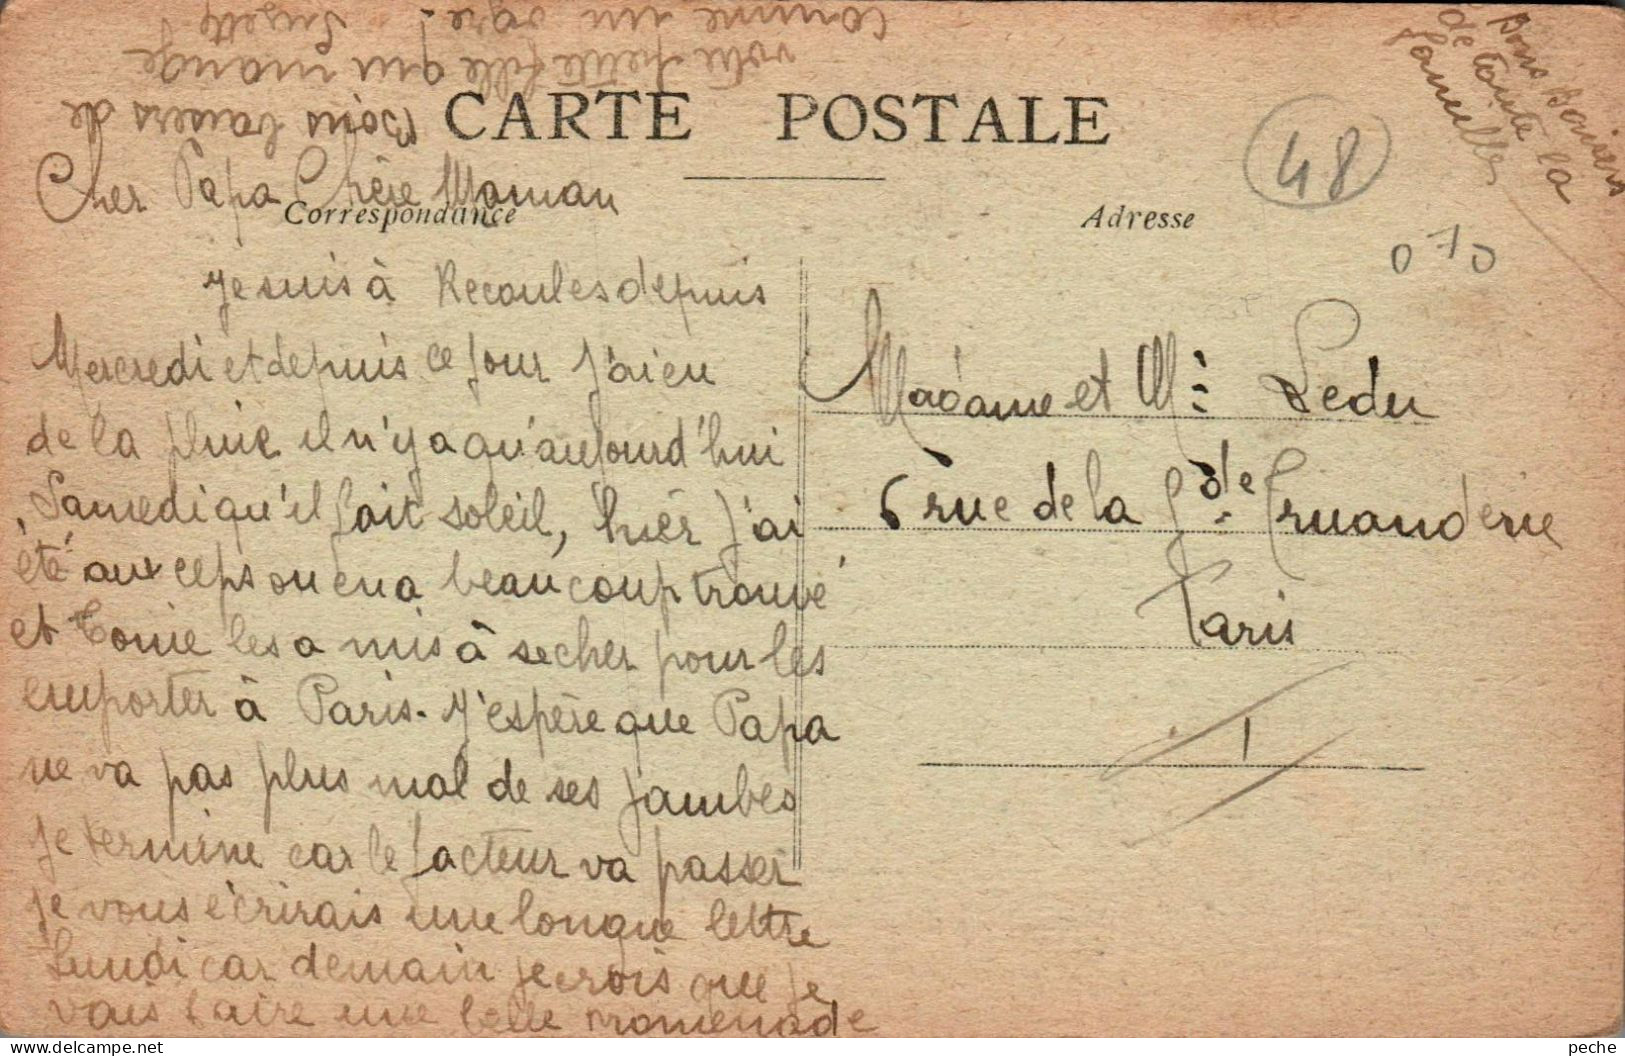 CARTE POSTALE
48
Correspondance
Adresse
Cher Papa Chère Maman
Je suis à Recoules depuis
Mercredi et depuis ce jour j'ai eu
de la pluie il n'y a qu'aujourd'hui
Samedi qu'il fait soleil, hier j'ai
été aux ceps on en a beaucoup trouvé
et Tonie les a mis à sécher pour les
emporter à Paris. J'espère que Papa
ne va pas plus mal de ses jambes
je termine car le facteur va passer
je vous écrirais une longue lettre
Lundi car demain je crois que je
vais faire une belle promenade
Bons baisers de
votre petite fille qui mange
comme un ogre!
Susette
Bons Baisers
de toute la
famille
070
Madame et Mr Ledu
6 rue de la Gde Truanderie
Paris
peche